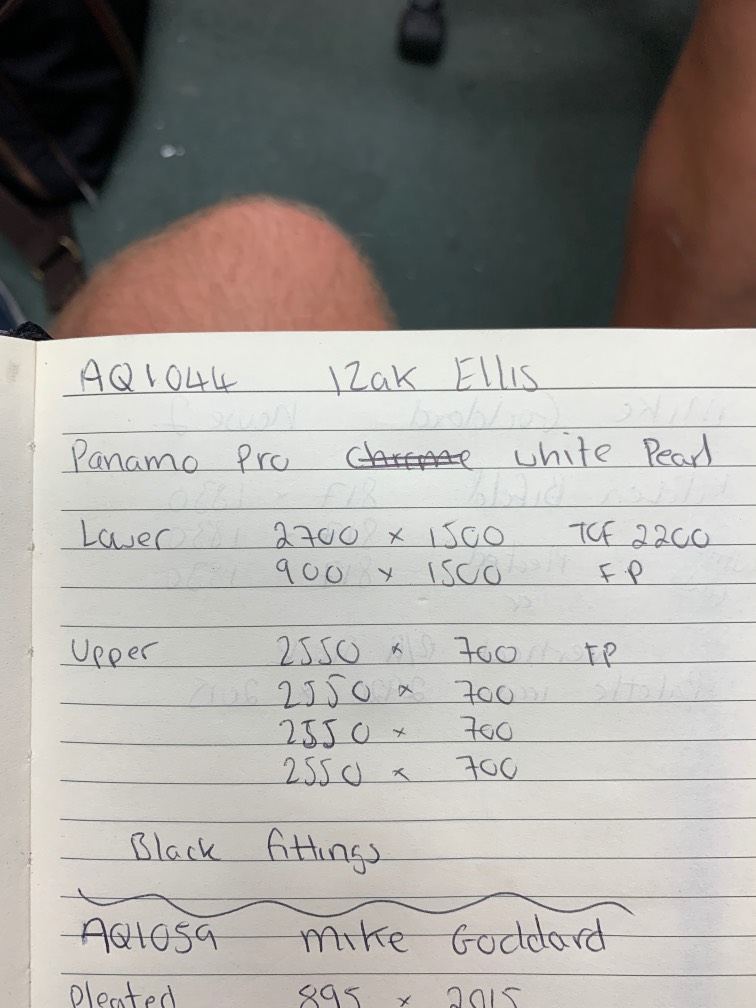 AQ1044 IZak Ellis
Panamo Pro Chrome white Pearl
Lower 2700 x 1500 TCF 2200
900 x 1500 F.P
Upper 2550 x 700 FP
2550 x 700
2550 x 700
2550 x 700
Black fittings
AQ1059 Mike Goddard
Pleated 895 x 2015